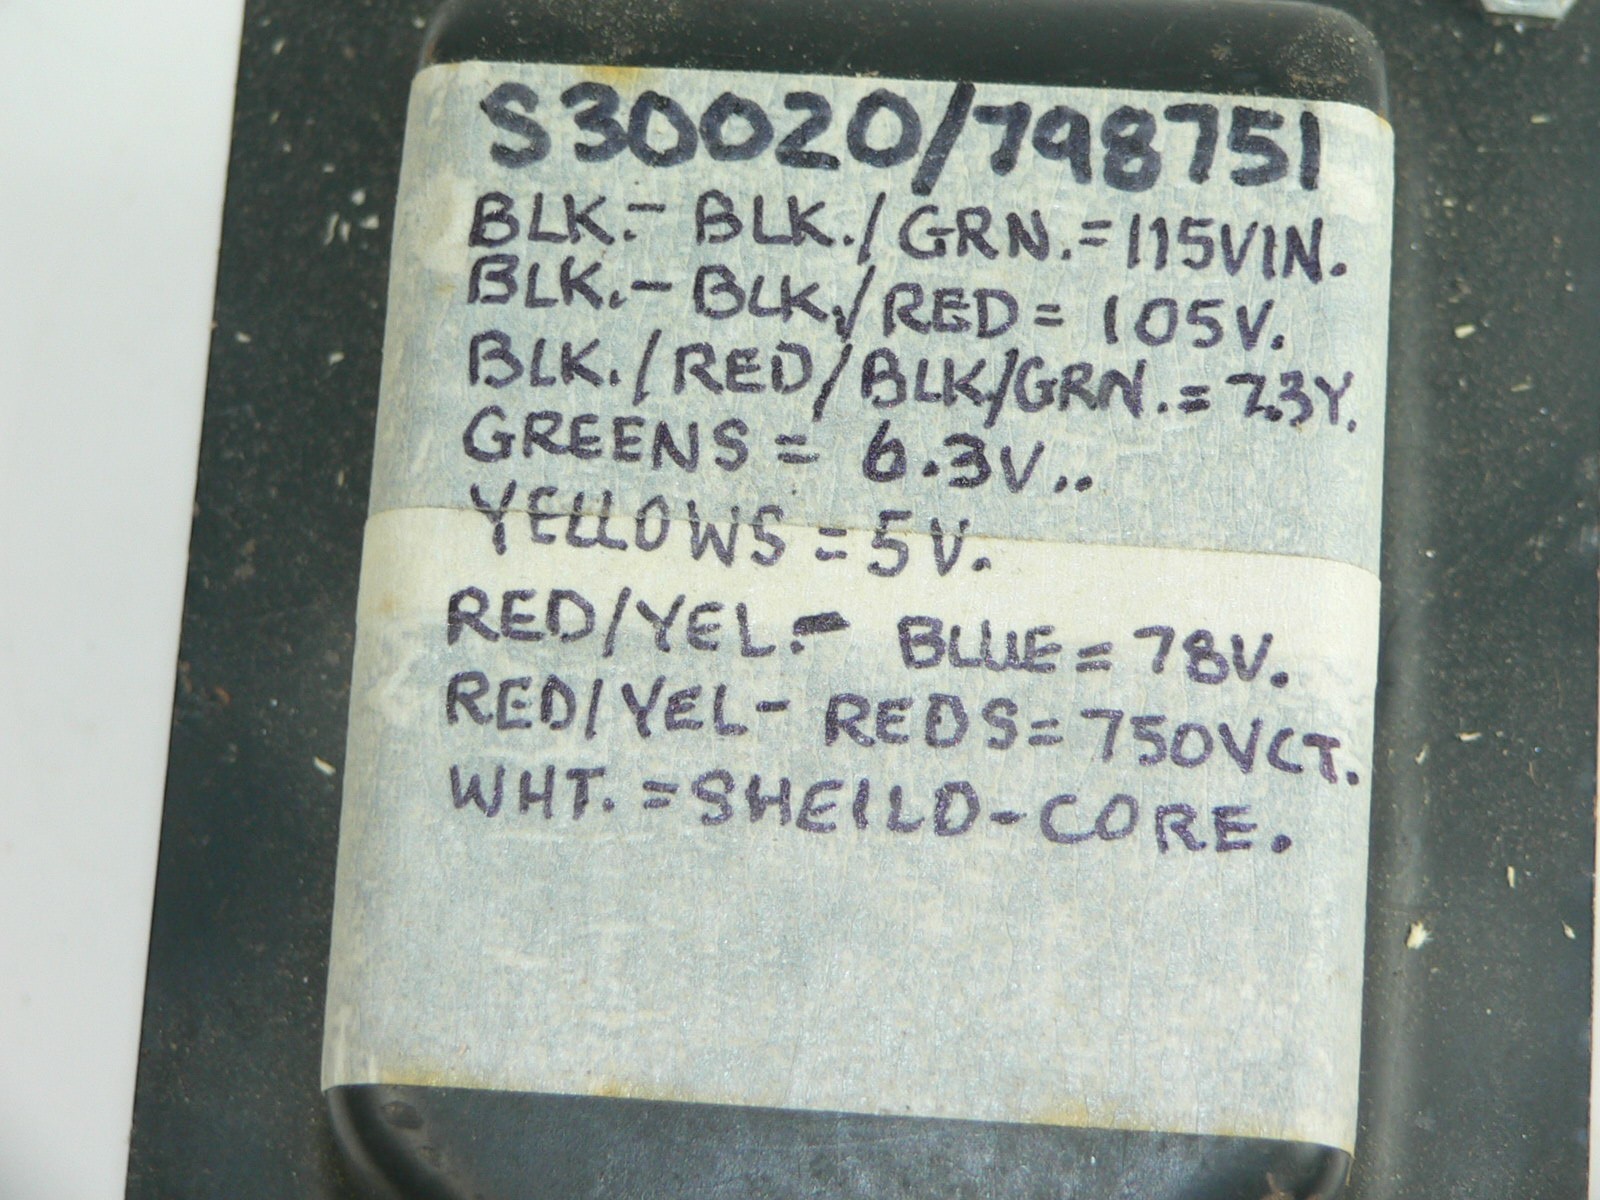 S30020/798751
BLK.- BLK./GRN.=115VIN.
BLK.- BLK./RED= 105V.
BLK./RED/BLK/GRN.= 7.3V.
GREENS= 6.3V..
YELLOWS=5V.
RED/YEL.- BLUE=78V.
RED/YEL- REDS=750VCT.
WHT.=SHEILD-CORE.